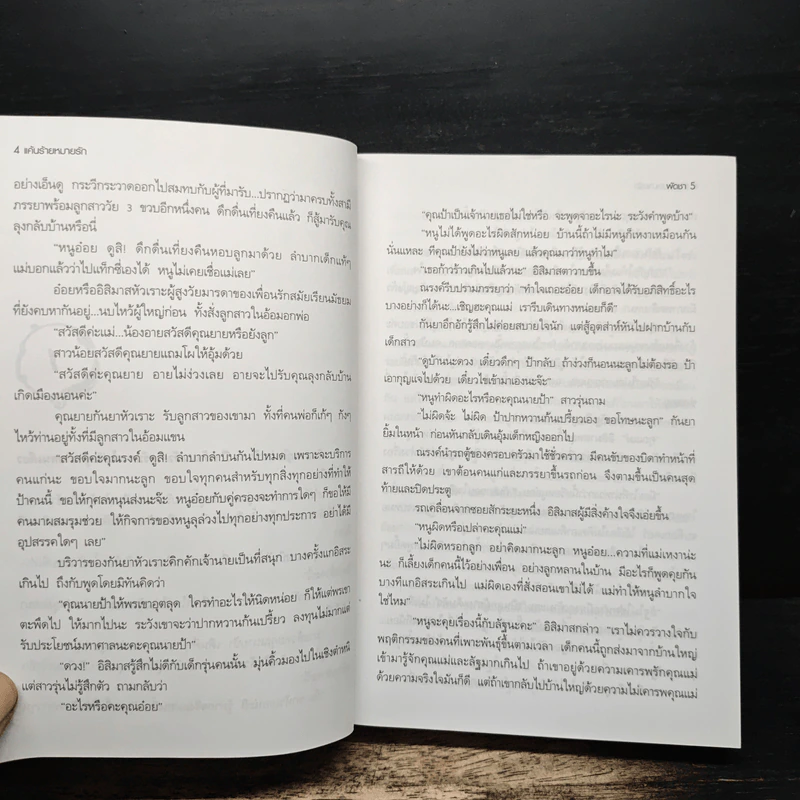 4 แค้นร้ายหมายรัก
อย่างเอ็นดู กระวีกระวาดออกไปสมทบกับผู้ที่มารับ...ปรากฏว่ามาครบทั้งสามี
ภรรยาพร้อมลูกสาววัย 3 ขวบอีกหนึ่งคน ดึกดื่นเที่ยงคืนแล้ว ก็สู้มารับคุณ
ลุงกลับบ้านหรือนี่
“หนูอ่อย ดูสิ! ดึกดื่นเที่ยงคืนหอบลูกมาด้วย ลำบากเด็กแท้ๆ
แม่บอกแล้วว่าไปแท็กซี่เองได้ หนูไม่เคยเชื่อแม่เลย”
อ่อยหรืออิสิมาสหัวเราะผู้สูงวัยมารดาของเพื่อนรักสมัยเรียนมัธยม
ที่ยังคบหากันอยู่...นบไหว้ผู้ใหญ่ก่อน ทั้งสั่งลูกสาวในอ้อมอกพ่อ
“สวัสดีค่ะแม่...น้องอายสวัสดีคุณยายหรือยังลูก”
สาวน้อยสวัสดีคุณยายแถมโผให้อุ้มด้วย
“สวัสดีค่ะคุณยาย อายไม่ง่วงเลย อายจะไปรับคุณลุงกลับบ้าน
เกิดเมืองนอนค่ะ”
คุณยายกันยาหัวเราะ รับลูกสาวของเขามา ทั้งที่คนพ่อก็เก้ๆ กังๆ
ไหว้ท่านอยู่ทั้งที่มีลูกสาวในอ้อมแขน
“สวัสดีค่ะคุณรงค์ ดูสิ! ลำบากลำบนกันไปหมด เพราะจะบริการ
คนแก่นะ ขอบใจมากนะลูก ขอบใจทุกคนสำหรับทุกสิ่งทุกอย่างที่ทำให้
ป้าคนนี้ ขอให้กุศลหนุนส่งนะจ๊ะ หนูอ่อยกับคู่ครองจะทำการใดๆ ก็ขอให้มี
คนมาผสมรุมช่วย ให้กิจการของหนูลุล่วงไปทุกอย่างทุกประการ อย่าได้มี
อุปสรรคใดๆ เลย”
บริวารของกันยาหัวเราะคิกคักเจ้านายเป็นที่สนุก บางครั้งแกอิสระ
เกินไป ถึงกับพูดโดยมิทันคิดว่า
“คุณนายป้าให้พรเขาอุตลุด ใครทำอะไรให้นิดหน่อย ก็ให้แต่พรเขา
ตะพึดไป ให้มากไปนะ ระวังเขาจะว่าปากหวานก้นเปรี้ยว ลงทุนไม่มากแต่
รับประโยชน์มหาศาลนะคะคุณนายป้า”
“ดวง!” อิสิมาสรู้สึกไม่ดีกับเด็กรุ่นคนนั้น มุ่นคิ้วมองไปในเชิงตำหนิ
แต่สาวรุ่นไม่รู้สึกตัว ถามกลับว่า
“อะไรหรือคะคุณอ่อย”
พัดชา 5
“คุณป้าเป็นเจ้านายเธอไม่ใช่หรือ จะพูดจาอะไรน่ะ ระวังคำพูดบ้าง”
“หนูไม่ได้พูดอะไรผิดสักหน่อย บ้านนี้ถ้าไม่มีหนูก็เหงาเหมือนกัน
นั่นแหละ ทีคุณป้ายังไม่ว่าหนูเลย แล้วคุณมาว่าหนูทำไม”
“เธอก้าวร้าวเกินไปแล้วนะ” อิสิมาสตาวาบขึ้น
ณรงค์รีบปรามภรรยาว่า “ทำใจเถอะอ่อย เด็กอาจได้รับอภิสิทธิ์อะไร
บางอย่างก็ได้นะ...เชิญฮะคุณแม่ เรารีบเดินทางหน่อยก็ดี”
กันยาอึกอักรู้สึกไม่ค่อยสบายใจนัก แต่สู้อุตส่าห์หันไปฝากบ้านกับ
เด็กสาว
“ดูบ้านนะดวง เดี๋ยวดึกๆ ป้ากลับ ถ้าง่วงก็นอนนะลูกไม่ต้องรอ ป้า
เอากุญแจไปด้วย เดี๋ยวไขเข้ามาเองนะจ๊ะ”
“หนูทำผิดอะไรหรือคะคุณนายป้า” สาวรุ่นถาม
“ไม่ผิดจ้ะ ไม่ผิด ป้าปากหวานก้นเปรี้ยวเอง ขอโทษนะลูก” กันยา
ยิ้มในหน้า ก่อนหันกลับเดินอุ้มเด็กหญิงออกไป
ณรงค์นำรถตู้ของครอบครัวมาใช้ชั่วคราว มีคนขับของบิดาทำหน้าที่
สารถีให้ด้วย เขาต้อนคนแก่และภรรยาขึ้นรถก่อน จึงตามขึ้นเป็นคนสุด
ท้ายและปิดประตู
รถเคลื่อนจากซอยสักระยะหนึ่ง อิสิมาสผู้มีสิ่งค้างใจจึงเอ่ยขึ้น
“หนูผิดหรือเปล่าคะคุณแม่”
“ไม่ผิดหรอกลูก อย่าคิดมากนะลูก หนูอ่อย...ความที่แม่เหงาน่ะ
นะ ก็เลี้ยงเด็กคนนี้ไว้อย่างเพื่อน อย่างลูกหลานในบ้าน มีอะไรก็พูดคุยกัน
บางทีแกอิสระเกินไป แม่ผิดเองที่สั่งสอนเขาไม่ได้ แม่ทำให้หนูลำบากใจ
ใช่ไหม”
“หนูจะคุยเรื่องนี้กับลัฐนะคะ” อิสิมาสกล่าว “เราไม่ควรวางใจกับ
พฤติกรรมของคนที่เพาะพันธุ์ขึ้นตามเวลา เด็กคนนี้ถูกส่งมาจากบ้านใหญ่
เข้ามารู้จักคุณแม่และลัฐมากเกินไป ถ้าเขาอยู่ด้วยความเคารพรักคุณแม่
ด้วยความจริงใจมันก็ดี แต่ถ้าเขากลับไปบ้านใหญ่ด้วยความไม่เคารพคุณแม่